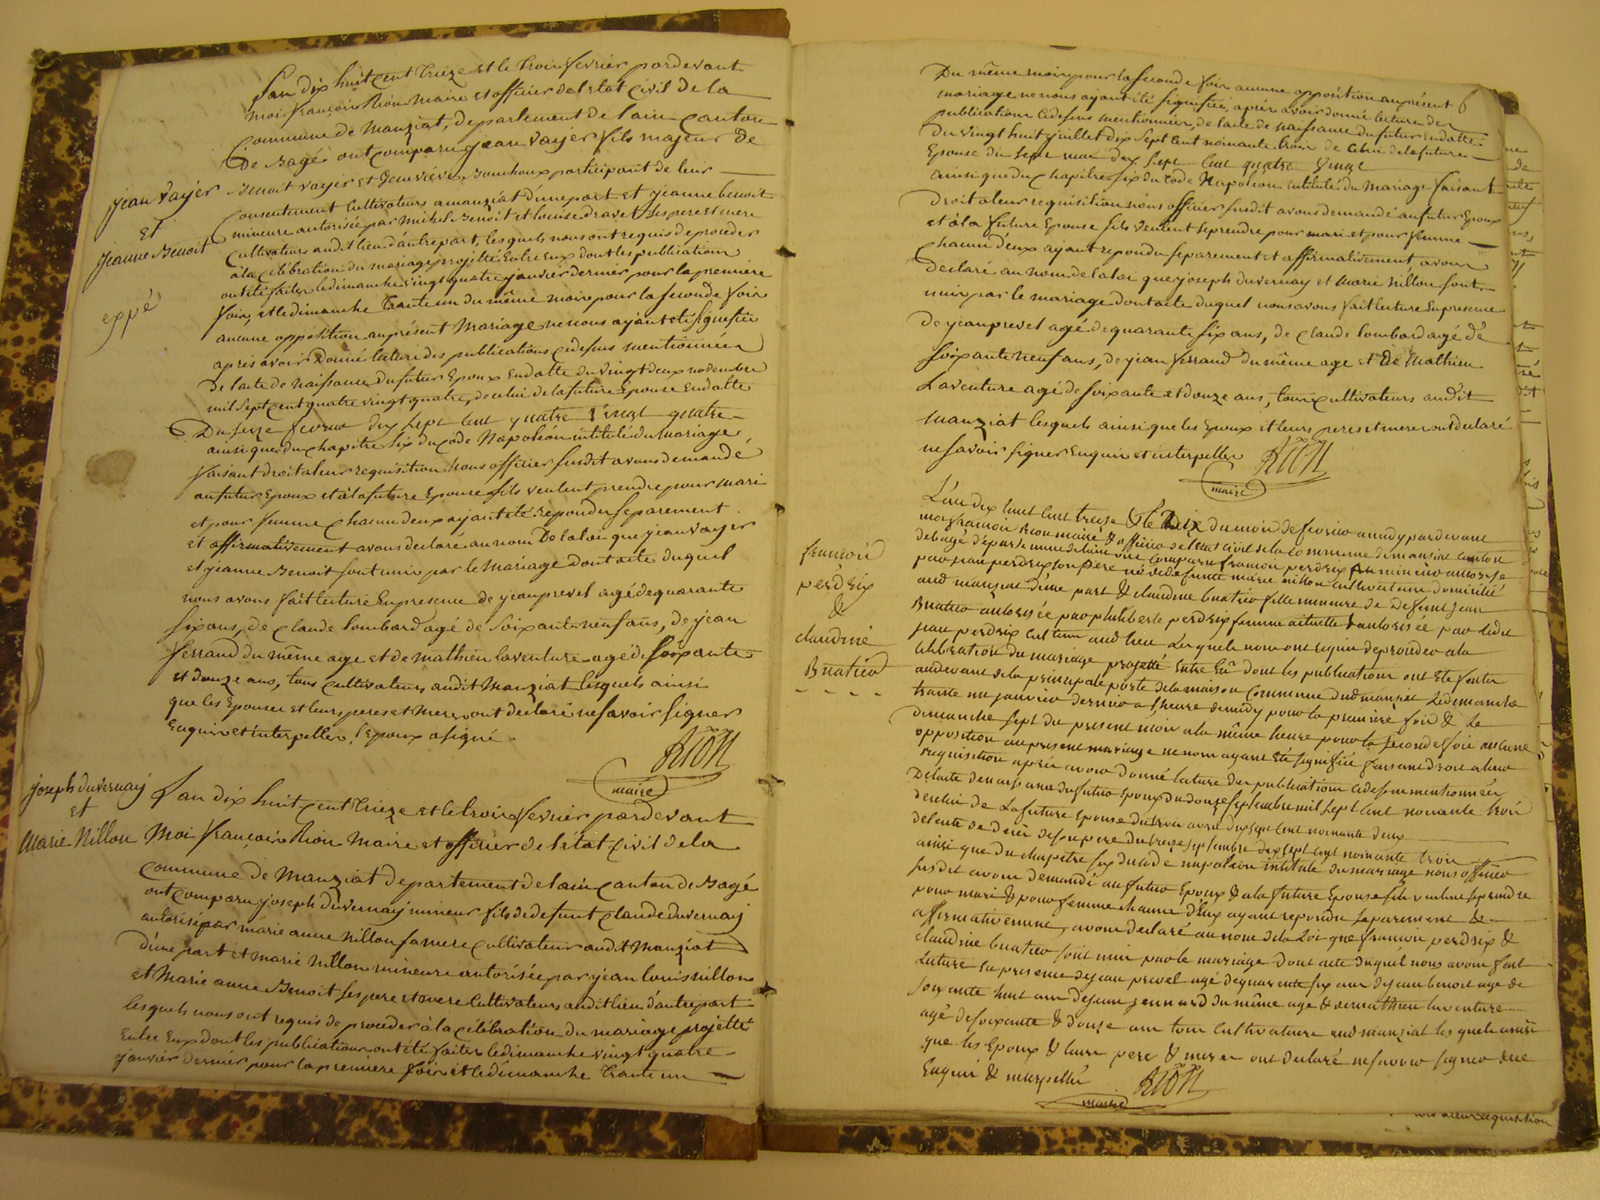 L'an dix huit Cent treize et le trois fevrier pardevant
moi françois Rion maire et officier de l'etat Civil de la
Commune de manziat, departement de l'ain canton
de Bagé ont Comparu jean vayer fils majeur de
Benoit vayer et Genevieve Bouchoux participant de leur
Consentement Cultivateurs a manziat d'une part et jeanne benoit
mineure autorisée par michel Benoit et Louise dravet Ses pere et mere
Cultivateurs audit lieu d'autre part, lesquels nous ont requis de proceder
à la Célébration du mariage projetté Entre Eux dont les publications
ont été faites le dimanche vingt quatre janvier dernier pour la premiere
fois, et le dimanche trente un du même mois pour la seconde fois
aucune opposition au présent Mariage ne nous ayant été signifiée
après avoir Donné lecture des publications cidessus mentionnées
De l'acte de Naissance du futur Epoux En datte du vingt deux novembre
mil Sept Cent quatre vingt quatre, de celui de la future Epouse En datte
Du seize fevrier dix sept Cent quatre Vingt quatre
ainsi que du chapitre six du Code Napoléon intitulé du mariage,
faisant droit a leur requisition Nous officier susdit avons demandé
au futur Epoux et à la future Epouse s'ils veulent prendre pour mari
et pour femme Chacun deux ayant été Repondu separement
et affirmativement avons declaré au nom De la loi que jean vayer
et jeanne Benoit sont unis par le Mariage dont acte duquel
nous avons fait lecture En presence de jean prevel agé de quarante
six ans, de Claude lombard agé de soixante neuf ans, de jean
ferrand du même age et de mathieu laventure agé de soixante
et douze ans, tous cultivateurs audit Manziat lesquels ainsi
que les Epouses et leurs peres et Meres ont declaré ne savoir signer
Enquis et interpellés. l'Epoux a signé.
Rion
maire
jean Vayer
Et
jeanne Benoit
expé
joseph duvernay
et
Marie Nillon
L'an dix huit Cent treize et le trois fevrier pardevant
Moi françois Rion Maire et officier de l'etat Civil de la
Commune de Manziat departement de l'ain Canton de Bagé
ont Comparu joseph duvernay mineur fils de defunt Claude duvernay
autorisé par marie anne Nillon sa mere Cultivateur audit Manziat
d'une part et marie Nillon mineure autorisée par jean louis nillon
et Marie anne Benoit ses pere et mere Cultivateurs audit lieu d'autre part
lesquels nous ont requis de proceder à la célébration du mariage projetté
Entre Eux dont les publications ont été faites le dimanche vingt quatre
janvier dernier pour la premiere fois et le dimanche trente un
6
Du même mois pour la seconde fois aucune opposition au présent
mariage ne nous ayant été signifiée, après avoir donné lecture des
publications cidessus mentionnées, de l'acte de naissance du futur En datte
Du vingt huit juillet dix Sept Cent nonante trois de Celui de la future
Epouse du sept mai dix sept Cent quatre vingt
ainsi que du Chapitre six du Code Napoléon intitulé du Mariage faisant
droit a leur requisition nous officier susdit avons demandé au futur Epoux
et à la future Epouse s'ils veulent se prendre pour mari et pour femme
Chacun deux ayant repondu separement et affirmativement avons
Declaré au nom de la loi que joseph duvernay et Marie Nillon sont
unis par le mariage dont acte duquel nous avons fait lecture En presence
de jean prevel agé de quarante six ans, de Claude lombard agé de
soixante neuf ans, de jean ferrand du même age et De Mathieu
Laventure agé de soixante et douze ans, tous Cultivateurs audit
manziat lesquels ainsi que les Epoux et leurs peres et meres ont declaré
ne savoir signer Enquis et interpellés
Rion
maire
françois
perdrix
&
claudine
Buatier
L'an dix huit Cent treise & le Dix du mois de fevrier a midy pardevant
moi françois Rion maire & officier de l'etat Civil de la Commune de manziat canton
de bagé departement de l'ain ont Comparu francois perdrix mineur autorisé
par jean perdrix son pere né de defunte marie nillon cultivateur domicilié
aud manziat d'une part & claudine buatier fille mineure de defunt jean
Buatier autorisée par philiberte perdrix femme actuelle & autorisée par ledit
jean perdrix cult aud lieu Lesquels nous ont requis de proceder a la
Celebration du mariage projetté entre Eux dont les publications ont été faites
audevant de la principale porte de la maison Commune dud manziat Le dimanche
trente un janvier dernier a l'heure de midy pour la premiere fois & le
dimanche sept du present mois a la même heure pour la seconde fois aucune
opposition au present mariage ne nous ayant été signifiée faisant droit a leur
requisition après avoir donné lecture des publications cidessus mentionnées
De l'acte de naissance du futur Epoux du douze septembre mil sept Cent nonante trois
de celui de La future Epouse du trois avril dix sept Cent nonante deux
de l'acte de décès de son pere du treize septembre dix sept Cent nonante trois
ainsi que du chapitre six du code napoléon intitulé du mariage nous officier
susdit avons demandé au futur Epoux & a la future Epouse s'ils veulent se prendre
pour mari & pour femme chacun d'Eux ayant repondu separement &
affirmativement, avons declaré au nom de la Loi que francois perdrix &
claudine buatier sont unis par le mariage dont acte duquel nous avons fait
Lecture en presence de jean prevel agé de quarante six ans de jean benoit agé de
soixante huit ans de jean ferrand du même age & de mathieu laventure
agé de soixante & douze ans tous Cultivateurs aud manziat lesquels ainsi
que les Epoux & leurs pere & mere ont declaré ne savoir signer de ce
Enquis & interpellés
Rion
maire